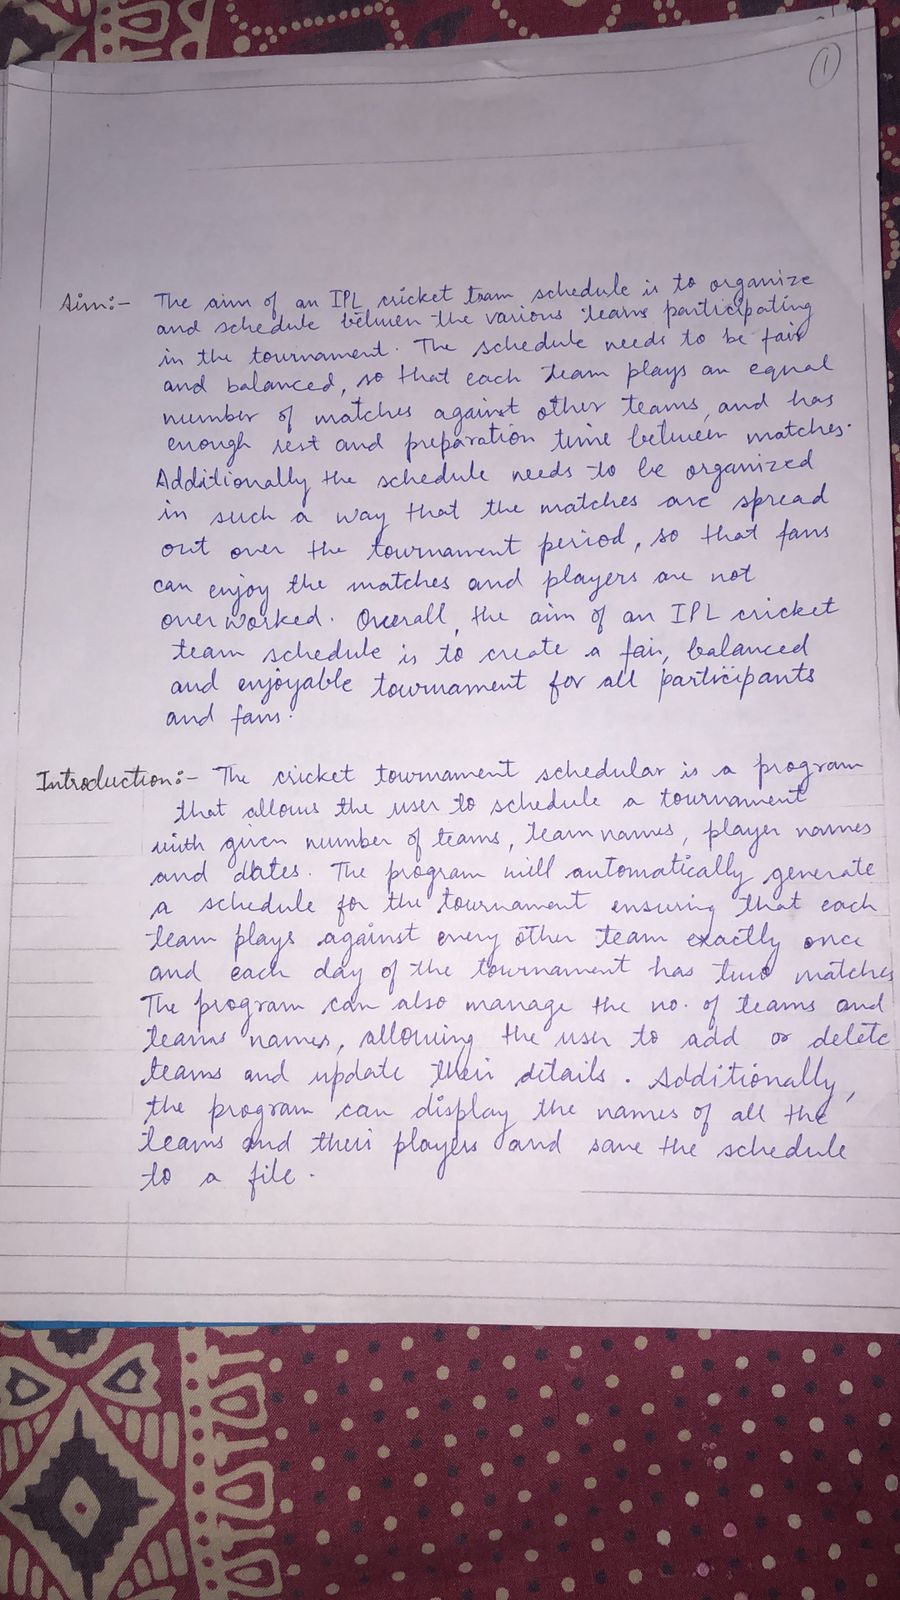 1
Aim:- The aim of an IPL cricket team schedule is to organize
and schedule between the various teams participating
in the tournament. The schedule needs to be fair
and balanced, so that each team plays an equal
number of matches against other teams, and has
enough rest and preparation time between matches.
Additionally the schedule needs to be organized
in such a way that the matches are spread
out over the tournament period, so that fans
can enjoy the matches and players are not
over worked. Overall, the aim of an IPL cricket
team schedule is to create a fair, balanced
and enjoyable tournament for all participants
and fans.
Introduction:- The cricket tournament schedular is a program
that allows the user to schedule a tournament
with given number of teams, team names, player names
and dates. The program will automatically generate
a schedule for the tournament ensuring that each
team plays against every other team exactly once
and each day of the tournament has two matches
The program can also manage the no. of teams and
teams names, allowing the user to add or delete
teams and update their details. Additionally,
the program can display the names of all the
teams and their players and save the schedule
to a file.